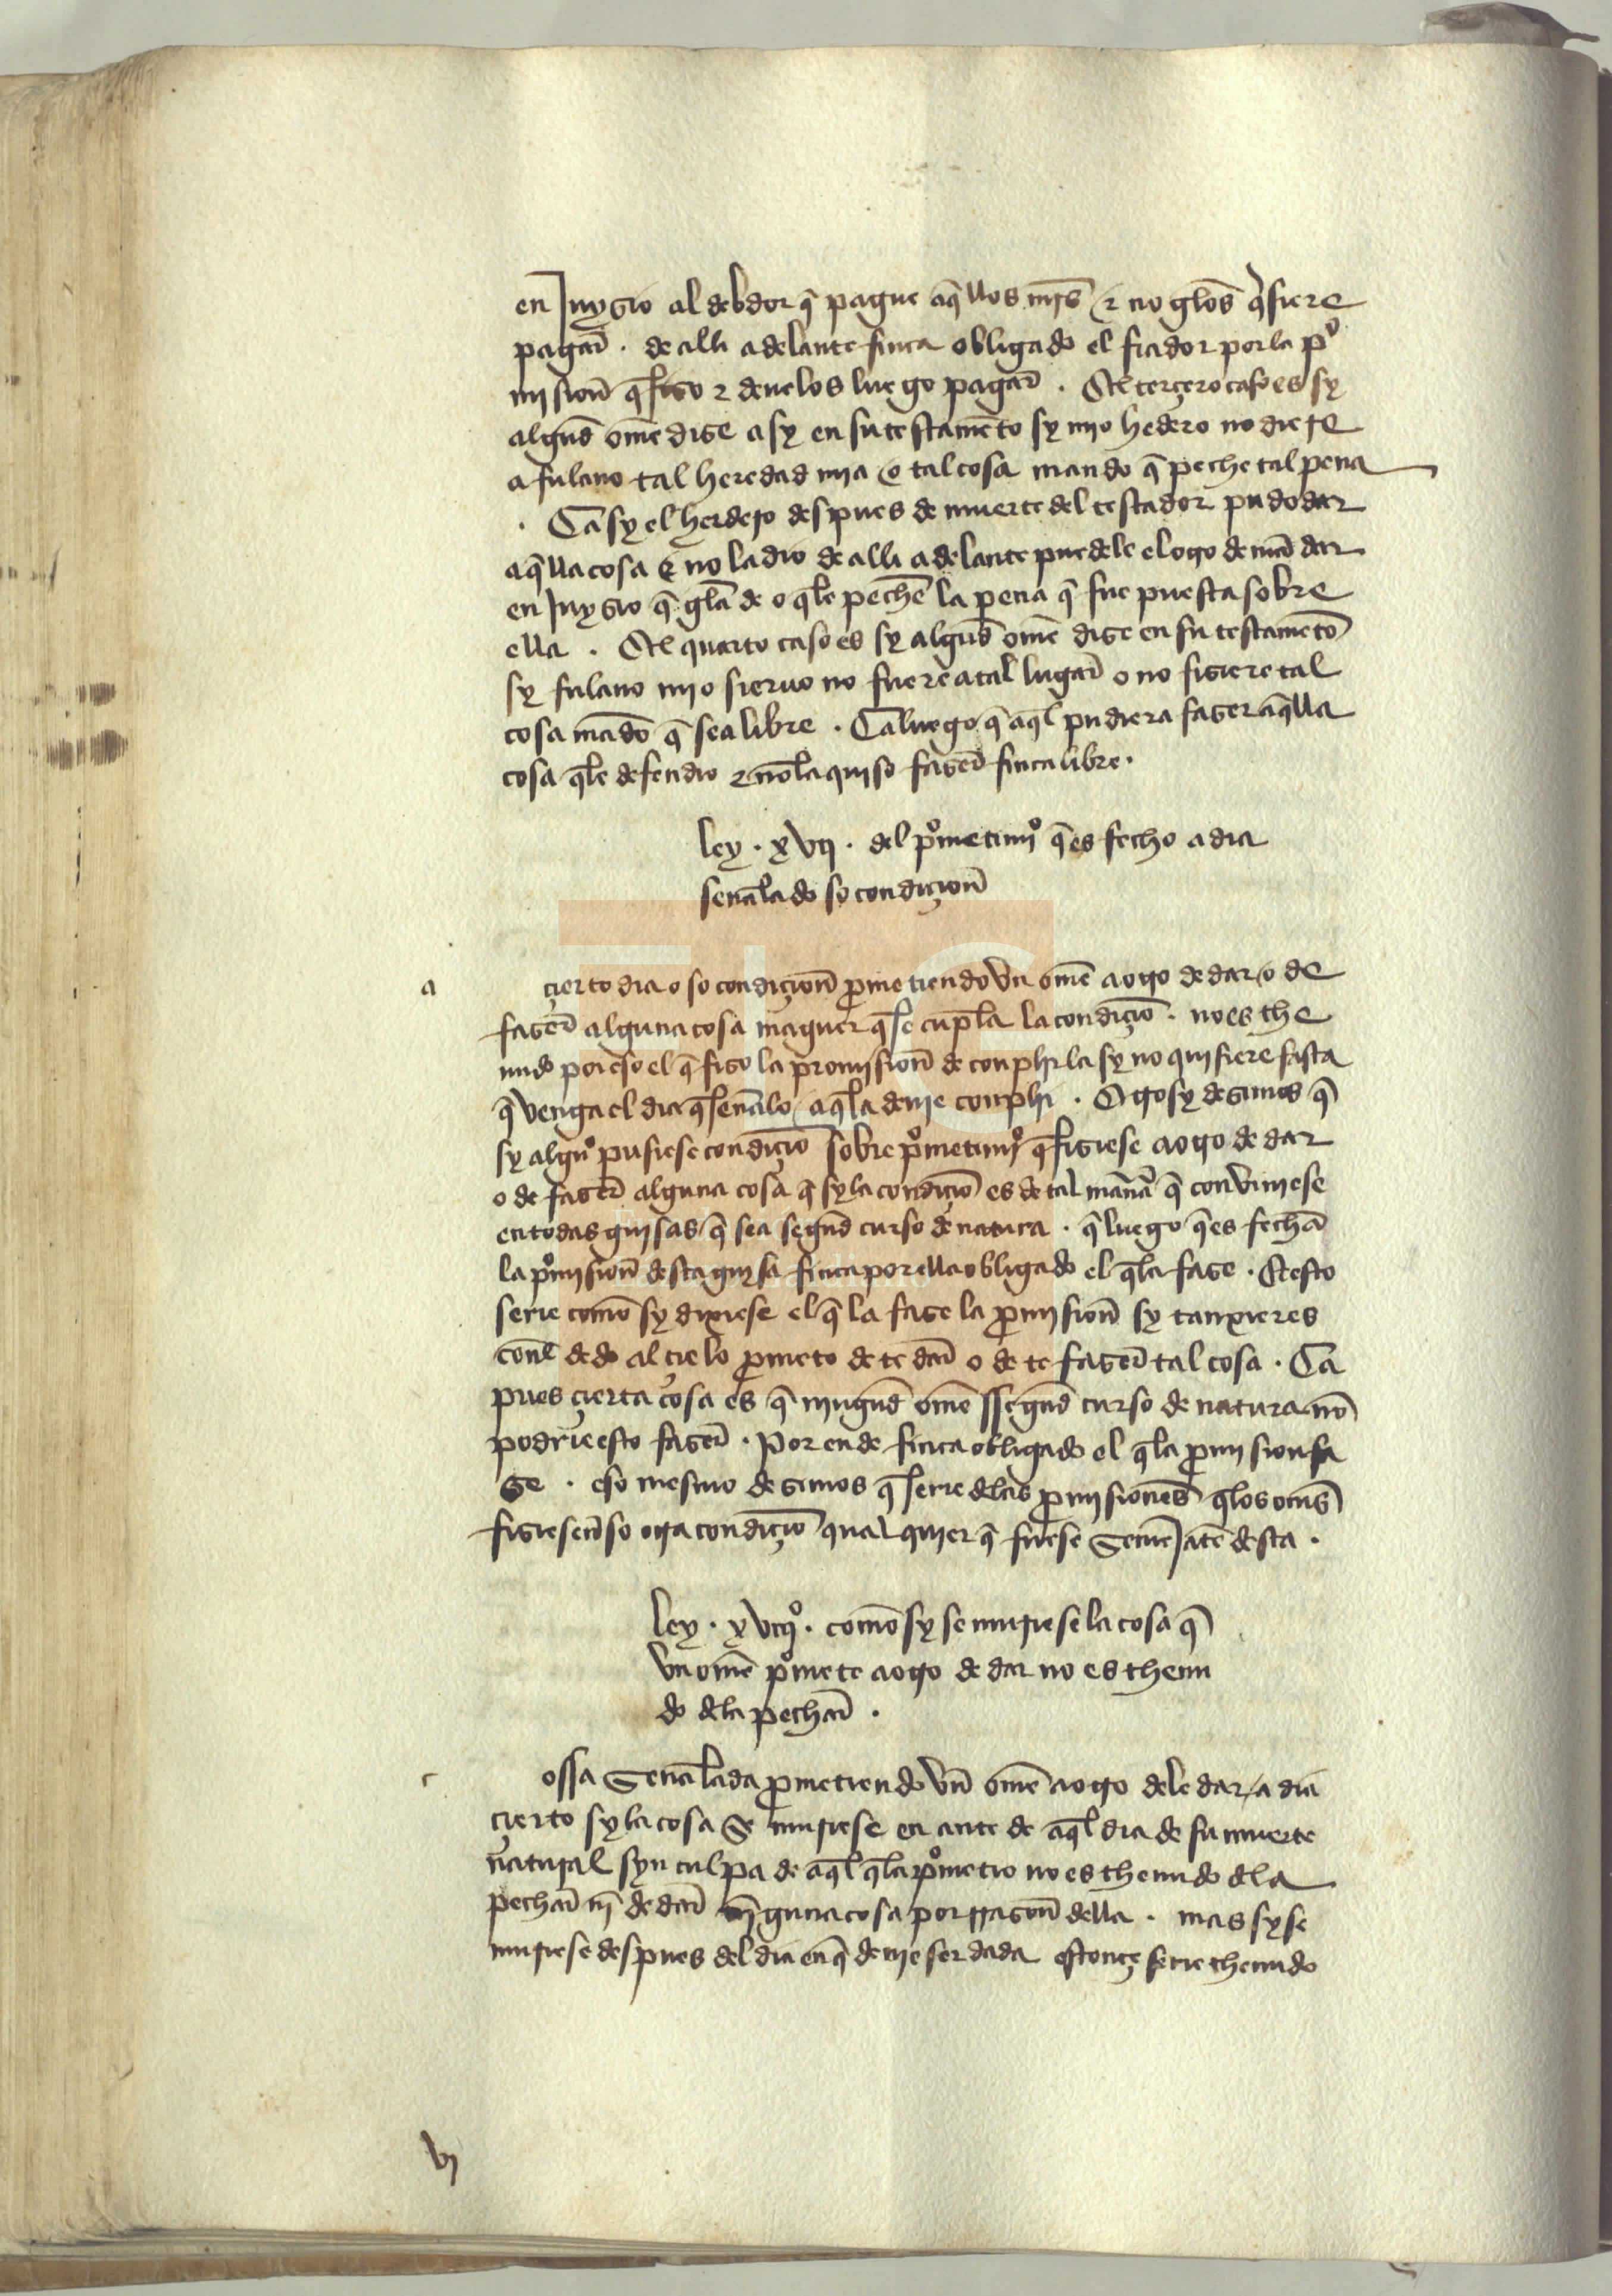 en Juyzio al debdor q̃ pague aq̃llos mr̃s & no gelos q̃siere
pagar̃ . de alli adelante finca obligado el fiador por la pº
misioñ q̃ fizo & deuelos luego pagar̃ . El terçero caso es sy
algũd om̃e dize asy en su testamẽto sy mio hedero no diere
a fulano tal heredad mia o tal cosa mando q̃ peche tal pena
. Ca sy el herdero despues de muerte del testador pudo dar
aq̃lla cosa & no la dio de alli adelante puedele el otro demãdar
en Juyzio q̃ gela de o q̃le pechẽ la pena q̃ fue puesta sobre
ella . El quarto caso es sy algũd om̃e dize en su testamẽto
sy fulano mio sieruo no fuere a tal lugar̃ o no fiziere tal
cosa mãdo q̃ sea libre . Ca luego q̃ aq̃l pudiera fazer aq̃lla
cosa q̃le defendio & nõ la quiso fazer̃ finca libre .
Ley . xvij . del pºmetimiº q̃ es fecho a dia
señalado so condiçioñ
a
çierto dia o so condiçioñ ꝓmetiendo vn om̃e a otro de dar o de
fazer̃ alguna cosa maguer q̃ se cupla la condiçiõ . no es the
nudo por eso el q̃ fizo la promisioñ de conplirla sy no quisiere fasta
q̃ venga el dia q̃ señalo a q̃ la deue conplir . Otrosy dezimos q̃
sy algũº pusiese condiçiõ sobre pºmetimiº q̃ fiziese a otro de dar
o de fazer̃ alguna cosa q̃ sy la condiçiõ es de tal manª q̃ conviniese
en todas guisas q̃ sea segũd curso de natura . q̃ luego q̃ es fecha
la pºmisioñ desta guysa finca por ella obligado el q̃la faze . E esto
serie como sy dixiese el q̃ la faze la ꝓmisioñ sy tanxieres
con el dedo al çielo ꝓmeto de te dar̃ o de te fazer̃ tal cosa . Ca
pues çierta cosa es q̃ ningũd om̃e ssegũd curso de natura nõ
podrie esto fazer̃ . Por ende finca obligado el q̃ la ꝓmision fa
ze . eso mesmo dezimos q̃ serie delas ꝓmisiones q̃ los om̃s
fiziesen so otra condiçiõ qual quier q̃ fuese semejãte desta .
Ley . xviijº . como sy se muriese la cosa q̃
vn om̃e pºmete a otro de dar no es thenu
do dela pechar̃ .
c
ossa señalada ꝓmetiendo vñ om̃e a otro dele dar a dia
çierto sy la cosa se muriese en ante de aq̃l dia de su muerte
natural syn culpa de aq̃l q̃la pºmetio no es thenudo dela
pechar̃ nĩ de dar̃ nĩguna cosa por rrazoñ della . mas sy se
muriese despues del dia en q̃ deuie ser dada estonçe serie thenudo
vj